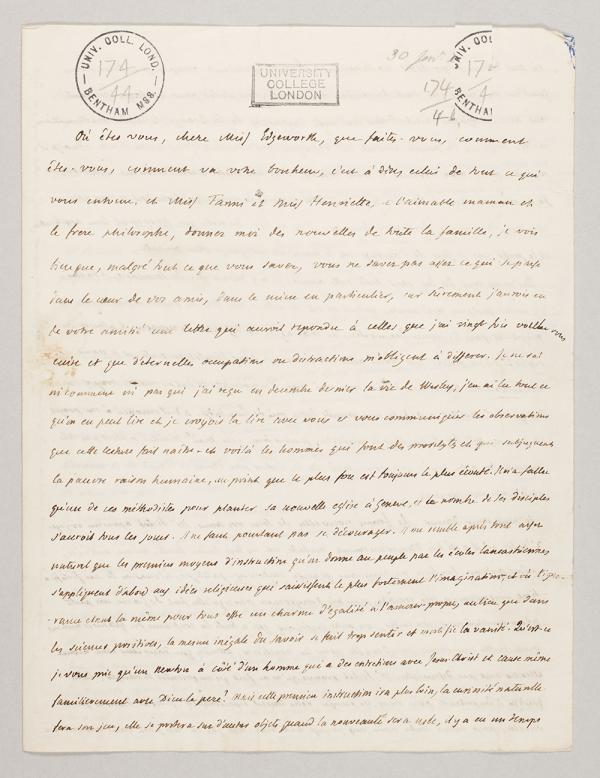 UNIV. COLL. LOND.
174
44
BENTHAM MSS.
UNIVERSITY
COLLEGE
LONDON
30
UNIV. COLL
174
4
BENTHAM
174
Où êtes vous, chere Miss Edgeworth, que faites-vous, comment
êtes-vous, comment va votre bonheur, c'est à dire celui de tout ce qui
vous entoure, et Miss Fanni et Miss Henriette, et l'aimable maman et
le frere philosophe, donnez moi des nouvelles de toute la famille, je vois
bien que, malgré tout ce que vous savez, vous ne savez pas assez ce qui se passe
dans le cœur de vos amis, dans le mien en particulier, car sûrement j'aurois eu
de votre amitié une lettre qui auroit repondu à celles que j'ai vingt fois voulu vous
ecrire et que d'eternelles occupations ou distractions m'obligent à differer. Je ne sai
ni comment ni par qui j'ai reçu en decembre dernier la vie de Wesley, j'en ai lu tout ce
qu'on en peut lire et je croyois la lire avec vous et vous communiquer les observations
que cette lecture fait naître - et voilà les hommes qui font des proselytes et qui subjuguent
la pauvre raison humaine, au point que le plus fou est toujours le plus écouté. Il n'a fallu
qu'un de ces méthodistes pour planter sa nouvelle eglise à Geneve, et le nombre de ses disciples
s'accroît tous les jours. Il ne faut pourtant pas se décourager. Il me semble après tout assez
naturel que les premiers moyens d'instruction qu'on donne au peuple par les écoles lancastriennes
s'appliquent d'abord aux idées religieuses qui saisissent le plus fortement l'imagination, et où l'igno-
rance étant la même pour tous offre un charme d'egalité à l'amour-propre, au lieu que dans
les sciences positives, la mesure inégale du savoir se fait trop sentir et mortifie la vanité. Qu'est-ce
je vous prie qu'un Newton à côté d'un homme qui a des entretiens avec Jesus Christ et cause même
familierement avec Dieu le pere! Mais cette premiere instruction ira plus loin, la curiosité naturelle
fera son jeu, elle se portera sur d'autres objets quand la nouveauté sera usée, il y a eu un temps